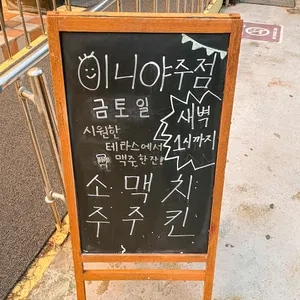 미니야주점
금토일
새벽
1시까지
시원한
테라스에서
맥주 한잔!
소 맥 치
주 주 킨